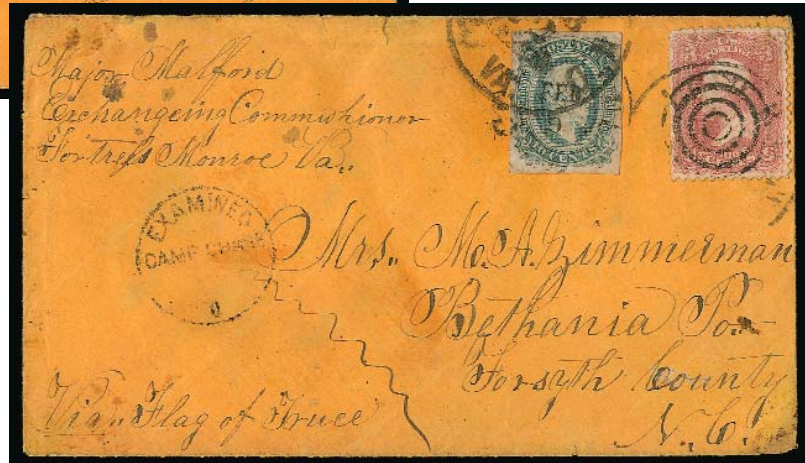 Major Malford
Exchangeing Commishioner
Fortress Monroe Va.
EXAMINED
CAMP CHASE
O
VA
FEB
TEN CENTS
U S
POSTAGE
Mrs. M. A. Zimmerman
Bethania Po
Forsyth County
N. C.
Via Flag of Truce